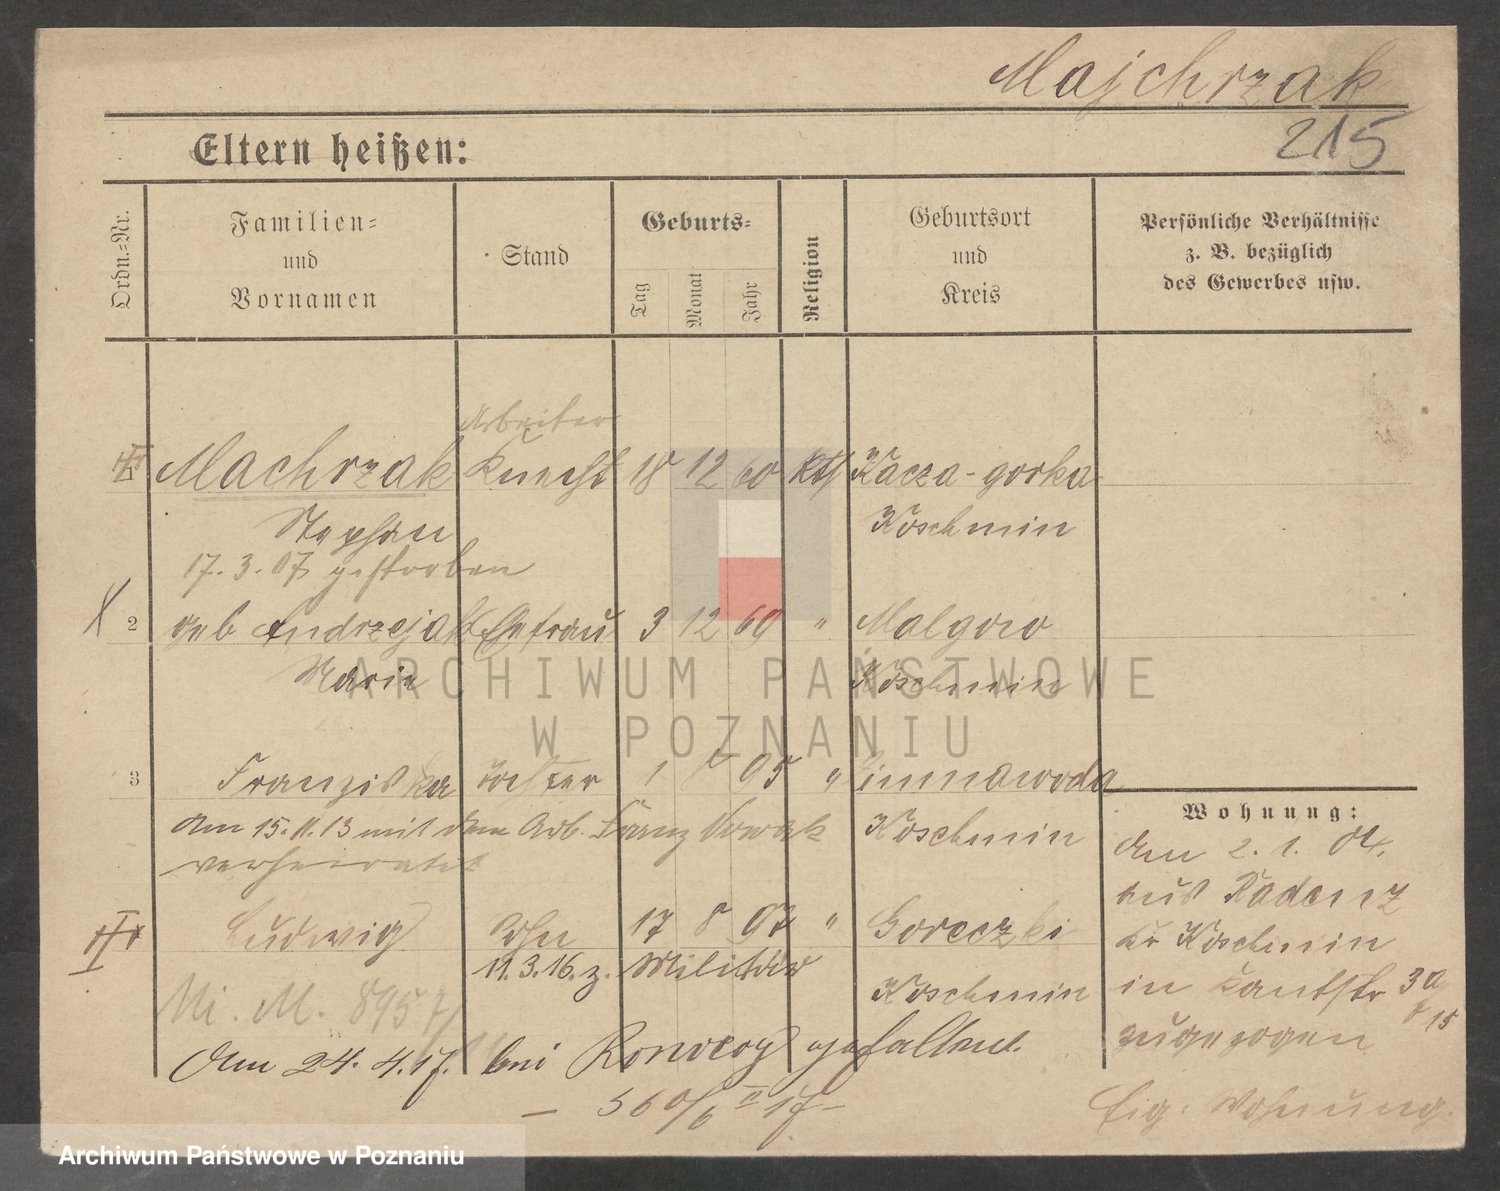 Majchrzak
215
Eltern heißen:
Ordn.-Nr.
Familien-
und
Vornamen
Stand
Geburts-
Tag
Monat
Jahr
Religion
Geburtsort
und
Kreis
Persönliche Verhältnisse
z. B. bezüglich
des Gewerbes usw.
Arbeiter
Machrzak Knecht 18 12 60 kth Kacza-gorka
Stephan Koschmin
17.3.07 gestorben
2 geb Andrzejak Ehefrau 3 12 69 " Malgow
Marie Koschmin
3 Franziska Tochter 1 05 " Zimnawoda
am 15.11.13 mit dem Arb. Franz Nowak Koschmin
verheiratet
Wohnung:
den 2.1.04.
aus Radenz
Kr Koschmin
in Kantstr 3a
15
zugezogen
Eig. Wohnung.
Ludwig Sohn 17 8 97 " Goreczki
11.3.16. z. Militär
Koschmin
Mi. M. 8957/
Am 24.4.17. bei Ronvcoy gefallen.
— 560/6 II 17 —
ARCHIWUM PAŃSTWOWE
W POZNANIU
Archiwum Państwowe w Poznaniu